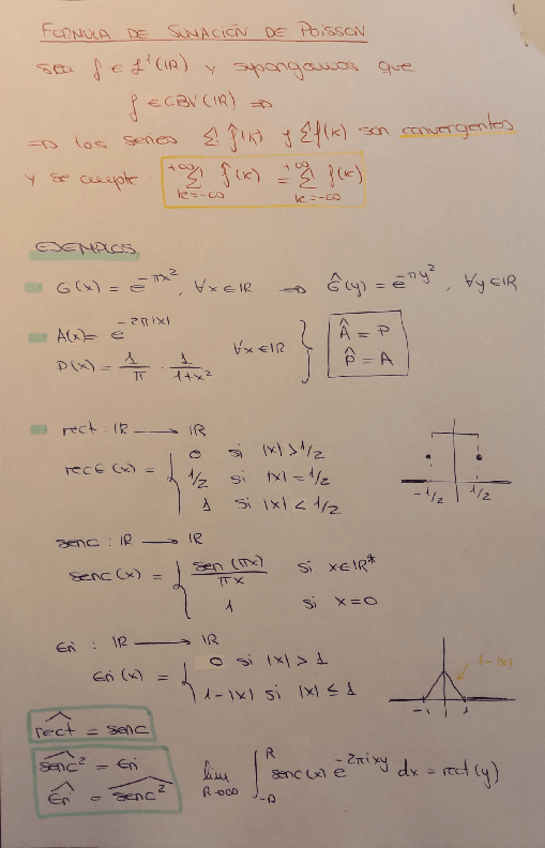 FORMULA DE SUMACIÓN DE POISSON
sea f ∈ L¹(IR) y supongamos que
f ∈ CBV(IR) ⇒
⇒ las series Σ f̂(k) y Σ f(k) son convergentes
y se cumple: +∞ Σ k=-∞ f̂(k) = +∞ Σ k=-∞ f(k)
EJEMPLOS
G(x) = e^{-πx²}, ∀x∈IR ⇒ Ĝ(y) = e^{-πy²}, ∀y∈IR
A(x)= e^{-2π|x|}
P(x) = 1/π · 1/(1+x²) ∀x∈IR } Â = P
P̂ = A
rect : IR → IR
rect (x) = { 0 si |x| > 1/2
1/2 si |x| = 1/2
1 si |x| < 1/2
-1/2 1/2
senc : IR → IR
senc (x) = { sen (πx)/πx si x∈IR*
1 si x=0
tri : IR → IR
tri (x) = { 0 si |x| > 1
1-|x| si |x| ≤ 1
1-|x|
-1 1
\widehat{rect} = senc
\widehat{senc²} = tri
\widehat{tri} = \widehat{senc²}
lim R→∞ ∫_{-R}^{R} senc(x) e^{-2πixy} dx = rect(y)